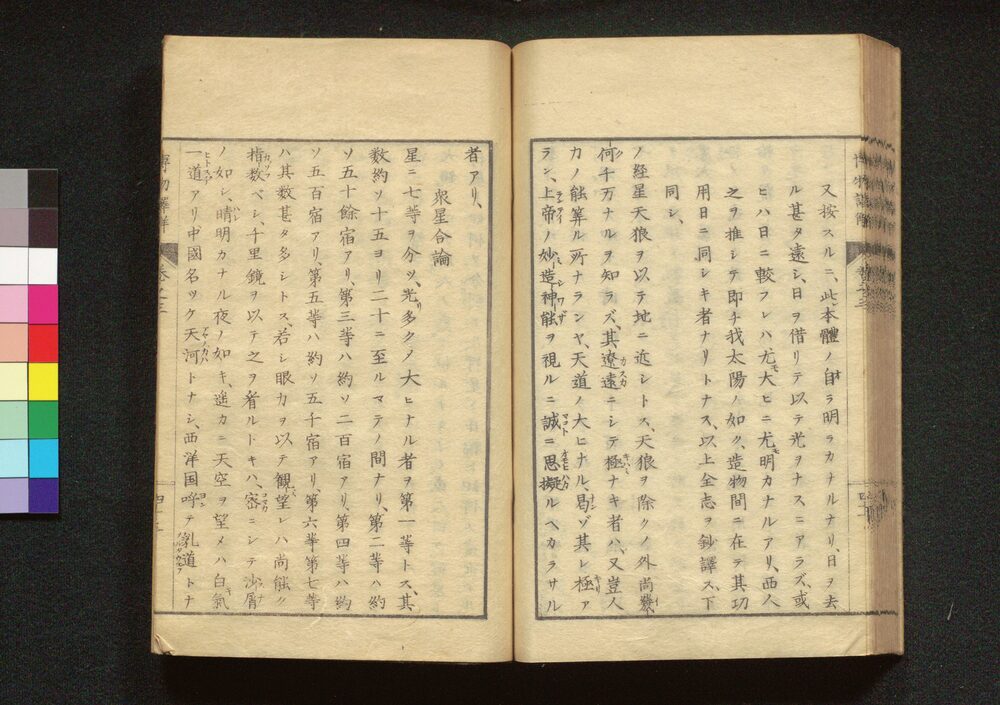 又按スルニ、此、本體ノ自ラ明ラカナルナリ、日ヲ去
ル甚タ遠シ、日ヲ借リテ以テ光ヲナスニアラズ、或
ヒハ日ニ較フレハ、尤大ヒニ尤明カナルアリ、西人
之ヲ推シテ即チ我太陽ノ如ク、造物間ニ在テ其功
用日ニ同シキ者ナリトナス、以上全志ヲ鈔譯ス、下
同シ、
ノ経星天狼ヲ以テ地ニ近シトス、天狼ヲ除クノ外尚幾
何千万ナルヲ知ラズ、其遼遠ニシテ極ナキ者ハ、又豈人
力ノ能算ル所ナランヤ、天道ノ大ヒナル、曷ゾ其レ極ア
ラン、上帝ノ妙造神能ヲ視ルニ誠ニ思擬ルヘカラサル
者アリ、
衆星合論
星ニ七等ヲ分ツ、光多クメ大ヒナル者ヲ第一等トス、其
数約ソ十五ヨリ二十ニ至ルマテノ間ナリ、第二等ハ約
ソ五十餘宿アリ、第三等ハ約ソ二百宿アリ、第四等ハ約
ソ五百宿アリ、第五等ハ約ソ五千宿アリ、第六等第七等
ハ其数甚タ多シトス、若シ眼力ヲ以テ観望レハ尚能ク
楷数ベシ、千里鏡ヲ以テ之ヲ看ルトキハ、密ニシテ沙屑
ノ如シ、晴明カナル夜ノ如キ、遙カニ天空ヲ望メハ白氣
一道アリ中國名ツケ天河トナシ、西洋国呼テ乳道トナ